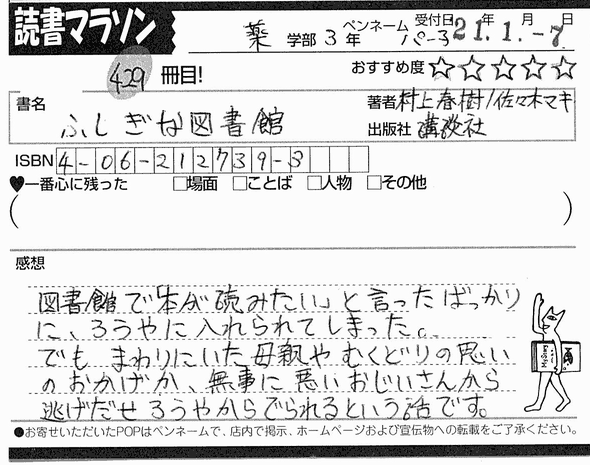 読書マラソン
薬 学部 3 年 ペンネーム パーラ 受付日 21.年 1.月 -7.日
429 冊目! おすすめ度 ☆☆☆☆☆
書名 ふしぎな図書館 著者 村上春樹/佐々木マキ
出版社 講談社
ISBN 4-06-212739-3
♥一番心に残った □場面 □ことば □人物 □その他
( )
感想
図書館で「本が読みたい」と言ったばっかり
に、ろうやに入れられてしまった。
でも まわりにいた母親や むくどりの思い
のおかげか、無事に悪いおじいさんから
逃げだせ ろうやからでられるという話です。
●お寄せいただいたPOPはペンネームで、店内で掲示、ホームページおよび宣伝物への転載をご了承ください。